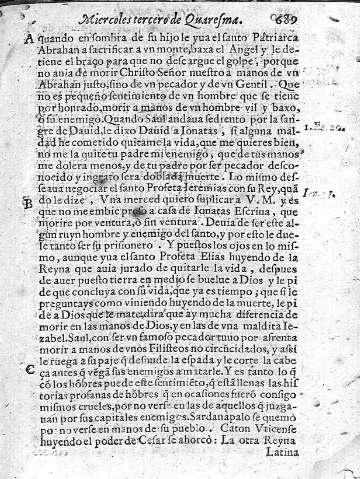 Miercoles tercero de Quaresma. 689
A quando en sombra de su hijo le yua el santo Patriarca
Abrahan a sacrificar a vn monte, baxa el Angel y le de-
tiene el braço para que no descargue el golpe, porque
no auia de morir Christo Señor nuestro a manos de vn
Abrahan justo, sino de vn pecador y de vn Gentil. Que
no es pequeño sentimiento de vn hombre que se tiene
por honrado, morir a manos de vn hombre vil y baxo,
o su enemigo. Quando Saul andaua sediento por la san-
gre de Dauid, le dixo Dauid a Ionatas, si alguna mal-
dad he cometido quitame la vida, que me quieres bien,
no me la quite tu padre mi enemigo, que de tus manos
me dolera menos, y de tu padre por ser pecador desco-
nocido y ingrato sera doblada muerte. Lo mismo des-
seaua negociar el santo Profeta Ieremias con su Rey, quã
B do le dize, Vna merced quiero suplicar a V. M. y es
que no me embie preso a casa de Ionatas Escriua, que
morire por ventura, o sin ventura. Deuia de ser este al-
gun ruyn hombre y enemigo del santo, y por esto le due-
le tanto ser su prisionero. Y puestos los ojos en lo mis-
mo, aunque yua el santo Profeta Elias huyendo de la
Reyna que auia jurado de quitarle la vida, despues
de auer puesto tierra en medio se buelue a Dios y le pi-
de que concluya con su vida, que ya es tiempo; que si le
preguntays como viniendo huyendo de la muerte, le pi-
de a Dios que le mate, dira que ay mucha diferencia de
morir en las manos de Dios, y en las de vna maldita Ie-
zabel. Saul, con ser vn famoso pecador tuuo por afrenta
morir a manos de vnos Filisteos no circũcidados, y assi
le ruega a su paje q̃ desnude la espada y le corte la cabe-
C ça antes q̃ vẽga sus enemigos a matarle. Y es tanto lo q̃
cõ los hõbres puede este sentimiẽto, q̃ està llenas las his-
torias profanas de hõbres q̃ en ocasiones fuerõ consigo
mismos crueles, por no verse en las de aquellos q̃ juzga-
uan por sus capitales enemigos. Sardanapalo se quemò
por no verse en manos de su pueblo. Caton Vticense
huyendo el poder de Cesar se ahorcò: La otra Reyna
Latina